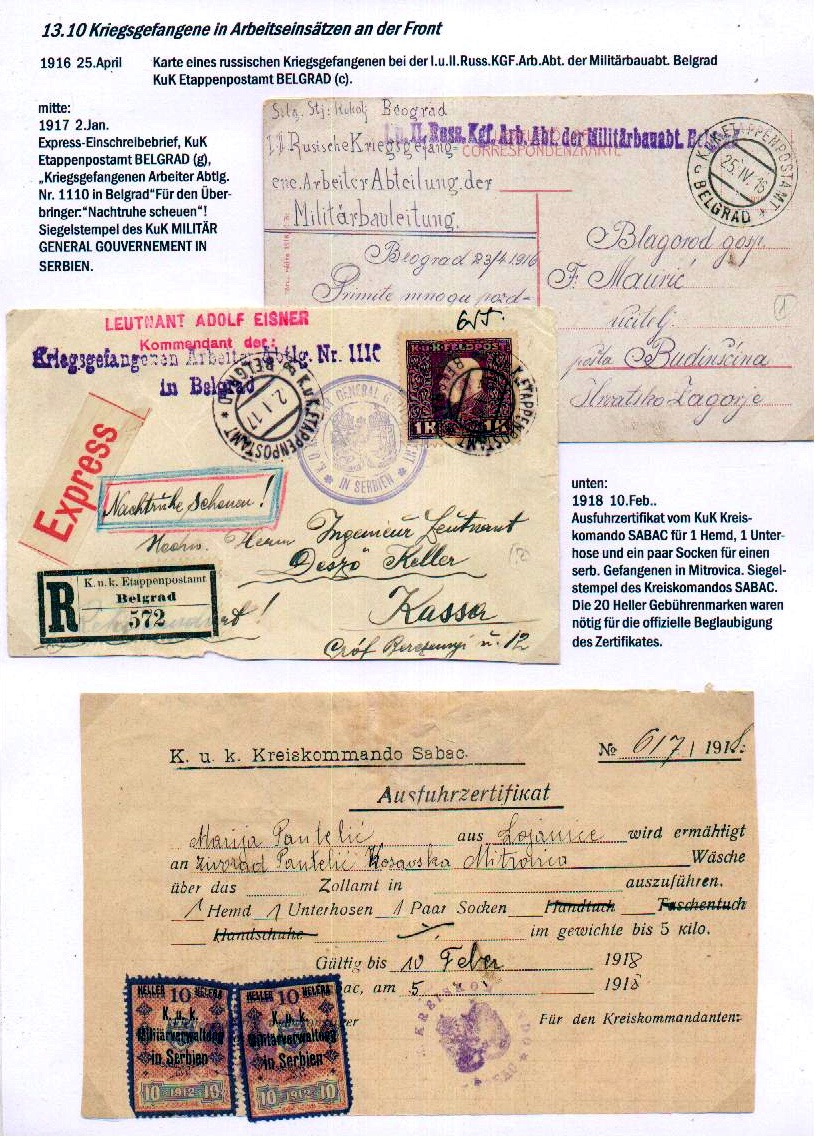 13.10 Kriegsgefangene in Arbeitseinsätzen an der Front
1916 25.April Karte eines russischen Kriegsgefangenen bei der I.u.II.Russ.KGF.Arb.Abt. der Militärbauabt. Belgrad
KuK Etappenpostamt BELGRAD (c).
mitte:
1917 2.Jan.
Express-Einschreibebrief, KuK
Etappenpostamt BELGRAD (g),
„Kriegsgefangenen Arbeiter Abtlg.
Nr. 1110 in Belgrad"Für den Über-
bringer:"Nachtruhe scheuen"!
Siegelstempel des KuK MILITÄR
GENERAL GOUVERNEMENT IN
SERBIEN.
Beograd
I.u. II. Russ. Kgf. Arb. Abt. der Militärbauabt.
CORRESPONDENZKARTE
Rusische Kriegsgefang-
ene Arbeiter Abteilung der
Militärbauleitung.
Beograd 23/4 1916
Primite mnogu pozd-
K.u.K. ETAPPENPOSTAMT
25.IV.16
BELGRAD
Blagorod gosp.
F. Maurić
učitelj
pošta Budinšćina
Hrvatsko Zagorje
1
LEUTNANT ADOLF EISNER
Kommandant der:
Kriegsgefangenen Arbeiter Abtlg. Nr. 1110
in Belgrad
K.u.K. ETAPPENPOSTAMT
BELGRAD
2.I.17
K.u.K. FELDPOST
1K 1K
IN SERBIEN
Express
Nachtruhe scheuen!
Hochw. Herrn Ingenieur Leutnant
Deszö Keller
Kassa
Gróf u. 12
R
K. u. k. Etappenpostamt
Belgrad
572
unten:
1918 10.Feb..
Ausfuhrzertifikat vom KuK Kreis-
komando SABAC für 1 Hemd, 1 Unter-
hose und ein paar Socken für einen
serb. Gefangenen in Mitrovica. Siegel-
stempel des Kreiskomandos SABAC.
Die 20 Heller Gebührenmarken waren
nötig für die offizielle Beglaubigung
des Zertifikates.
K. u. k. Kreiskommando Sabac.
№ 617 / 1918.
Ausfuhrzertifikat
Marija Pantelić aus Lojanice wird ermähtigt
an Živorad Pantelić Kosavska Mitrovica Wäsche
über das Zollamt in auszuführen.
1 Hemd 1 Unterhosen 1 Paar Socken Handtuch Taschentuch
Handschuhe im gewichte bis 5 kilo.
Gültig bis 10 Feber 1918
bac, am 5 1918
Für den Kreiskommandanten:
HELLER 10 HELERA
K. u. k.
Militärverwaltung
in Serbien
10 1912 10
HELLER 10 HELERA
K. u. k.
Militärverwaltung
in Serbien
10 1912 10